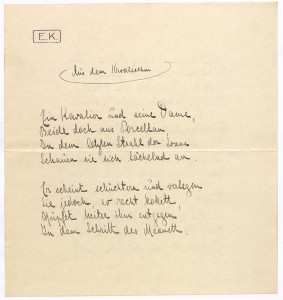 E.K.
Aus dem Kroatischen
Ein Kavalier und seine Dame,
Beide doch aus Porcellan,
In dem letzten Strahl der Sonne
Schauen sie sich lächelnd an.
Er scheint schüchtern und verlegen
Sie jedoch, er recht kokett,
Hüpft ihm entgegen
In dem Schritt des Menuett.